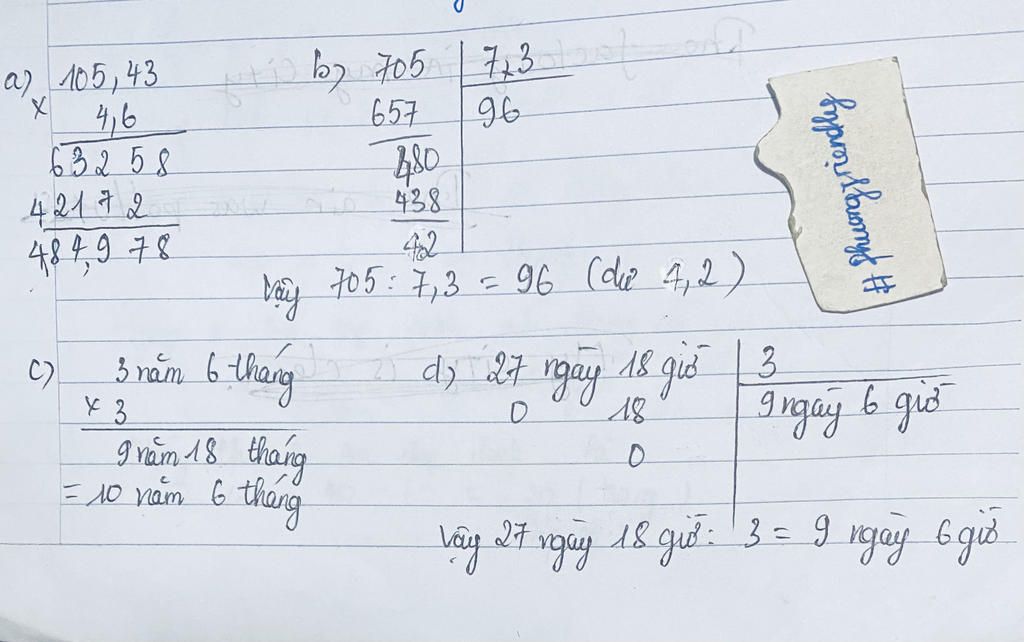 a) 105,43
x 4,6
63258
42172
484,978
b) 705 7,3
657 96
480
438
4,2
Vậy 705 : 7,3 = 96 (dư 4,2)
c) 3 năm 6 tháng
x 3
9 năm 18 tháng
= 10 năm 6 tháng
d) 27 ngày 18 giờ 3
0 18 9 ngày 6 giờ
0
Vậy 27 ngày 18 giờ : 3 = 9 ngày 6 giờ